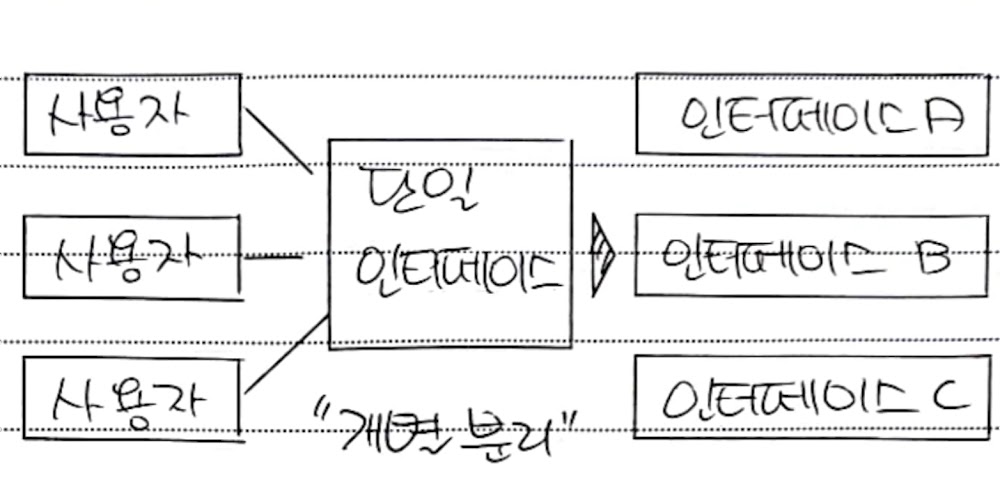 사용자
사용자
사용자
단일
인터페이스
"개별 분리"
인터페이스 A
인터페이스 B
인터페이스 C